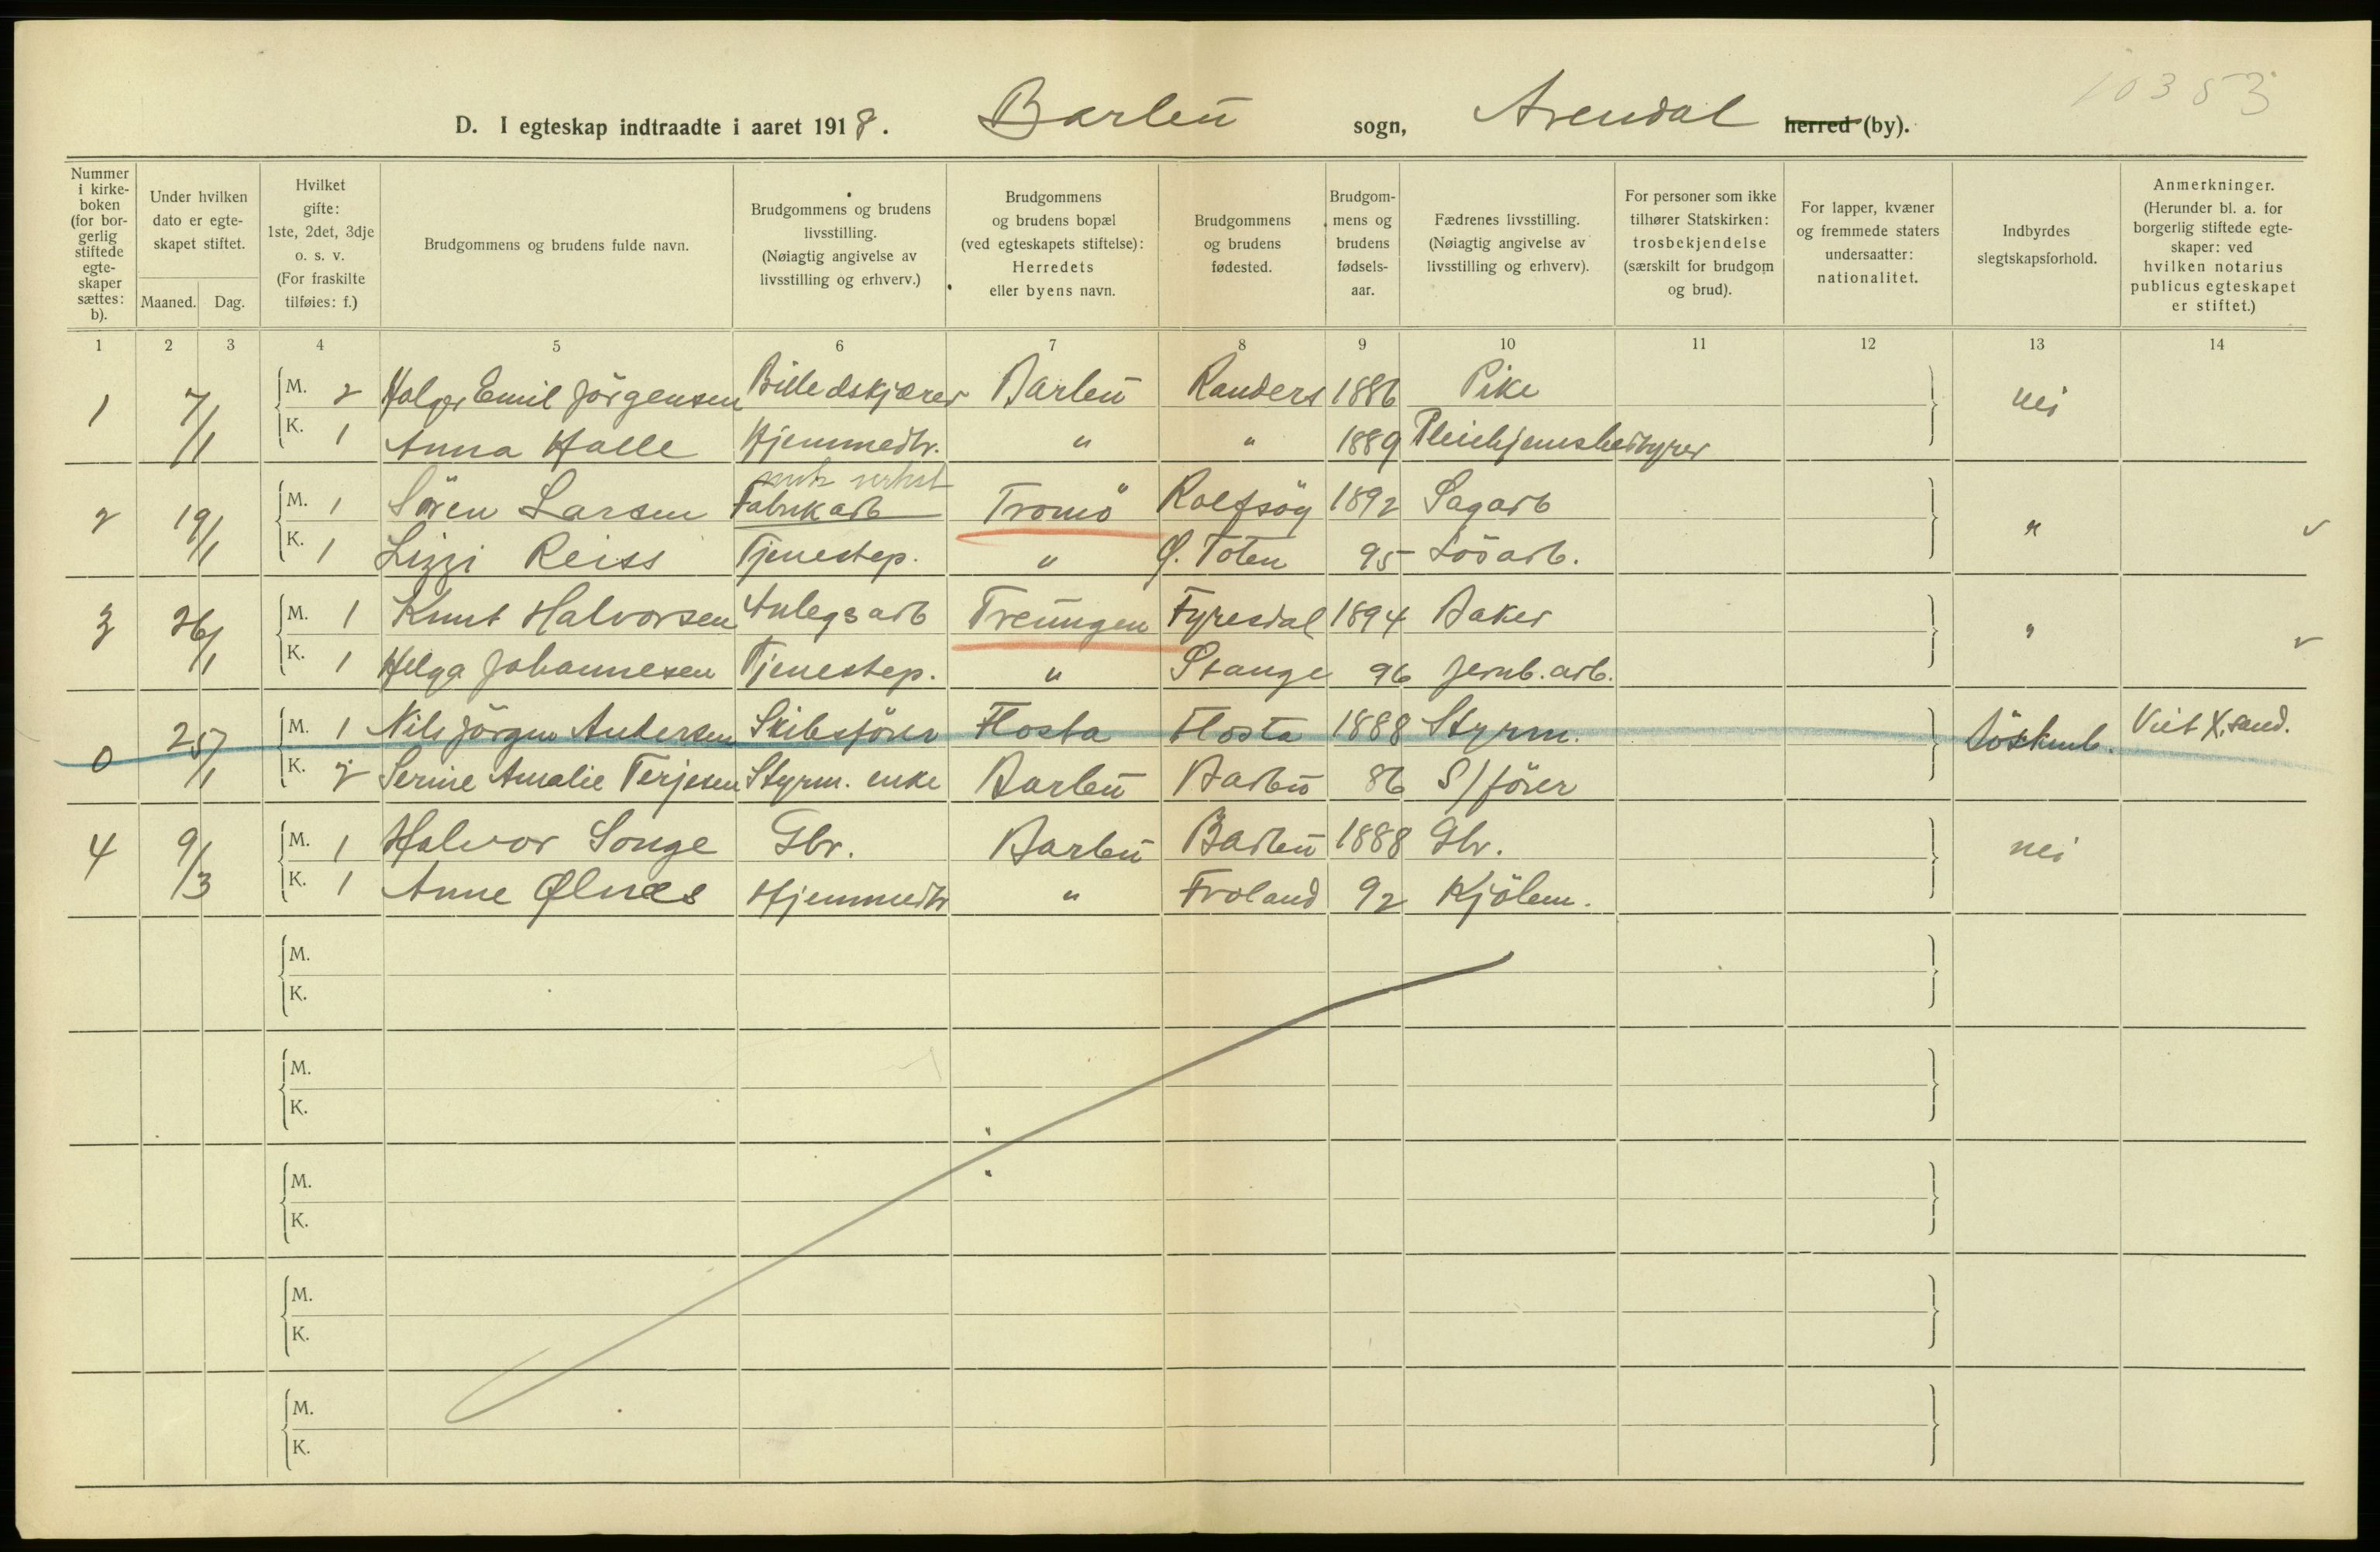 10353
D. I egteskap indtraadte i aaret 1918. Barbu sogn, Arendal herred (by).
Nummer i kirkeboken (for borgerlig stiftede egteskaper sættes: b).
Under hvilken dato er egteskapet stiftet.
Maaned. Dag.
Hvilket gifte: 1ste, 2det, 3dje o. s. v. (For fraskilte tilføies: f.)
Brudgommens og brudens fulde navn.
Brudgommens og brudens livsstilling. (Nøiagtig angivelse av livsstilling og erhverv.)
Brudgommens og brudens bopæl (ved egteskapets stiftelse): Herredets eller byens navn.
Brudgommens og brudens fødested.
Brudgommens og brudens fødselsaar.
Fædrenes livsstilling. (Nøiagtig angivelse av livsstilling og erhverv).
For personer som ikke tilhører Statskirken: trosbekjendelse (særskilt for brudgom og brud).
For lapper, kvæner og fremmede staters undersaatter: nationalitet.
Indbyrdes slegtskapsforhold.
Anmerkninger. (Herunder bl. a. for borgerlig stiftede egteskaper: ved hvilken notarius publicus egteskapet er stiftet.)
1 2 3 4 5 6 7 8 9 10 11 12 13 14
1 7/1 M. 2 Holger Emil Jörgensen Billedskjærer Barbu Randers 1886 Pike nei
K. 1 Anna Halle Hjemmedtr. " " 1889 Pleiehjemsbestyrer
2 19/1 M. 1 Sören Larsen Fabrikarb Tromö Rolfsöy 1892 Sagarb "
K. 1 Lizzi Reiss Tjenestep. " Ø. Toten 95 Lösarb.
3 26/1 M. 1 Knut Halvorsen Anlegsarb Treungen Fyresdal 1894 Baker "
K. 1 Helga Johannesen Tjenestep. " Stange 96 Jernb. arb.
0 25/1 M. 1 Nils Jörgen Andersen Skibsförer Flosta Flosta 1888 Styrm. Söskenb. Viet X.sand.
K. 2 Serine Amalie Terjesen Styrm. enke Barbu Barbu 86 S/förer
4 9/3 M. 1 Halvor Songe Gbr. Barbu Barbu 1888 Gbr. nei
K. 1 Anne Ølnes Hjemmedtr " Froland 92 Kjölem.
M.
K.
M.
K.
M.
K.
M.
K.
M.
K.